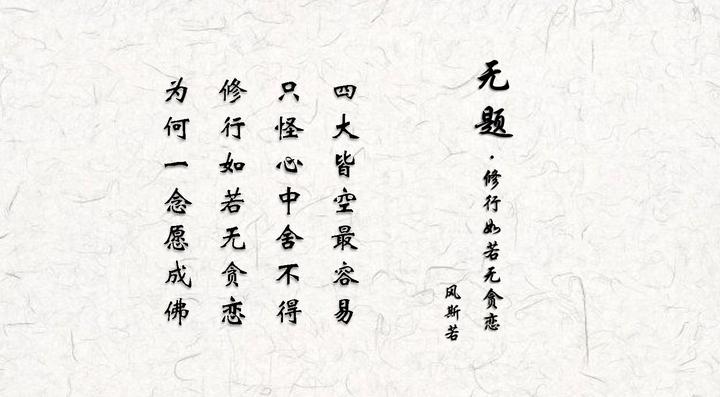 无题·修行如若无贪恋
风斯若
四大皆空最容易
只怪心中舍不得
修行如若无贪恋
为何一念愿成佛